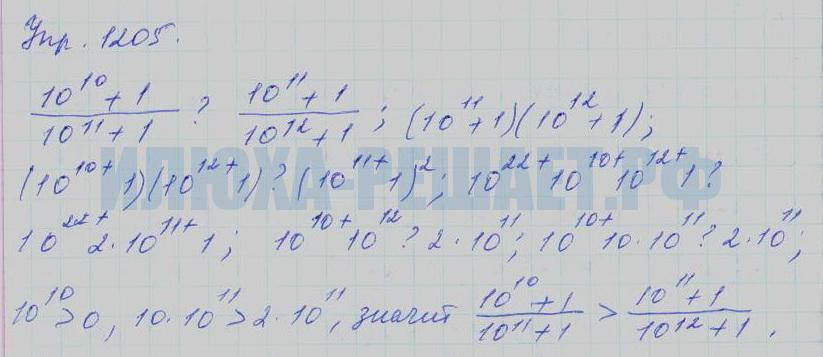 Упр. 1205.
(10^10 + 1)/(10^11 + 1) ? (10^11 + 1)/(10^12 + 1); (10^11 + 1)(10^12 + 1);
ИЛЮХА-РЕШАЕТ.РФ
(10^10 + 1)(10^12 + 1) ? (10^11 + 1)^2; 10^22 + 10^10 + 10^12 + 1 ?
10^22 + 2·10^11 + 1; 10^10 + 10^12 ? 2·10^11; 10^10 + 10·10^11 ? 2·10^11;
10^10 > 0, 10·10^11 > 2·10^11, значит (10^10 + 1)/(10^11 + 1) > (10^11 + 1)/(10^12 + 1).